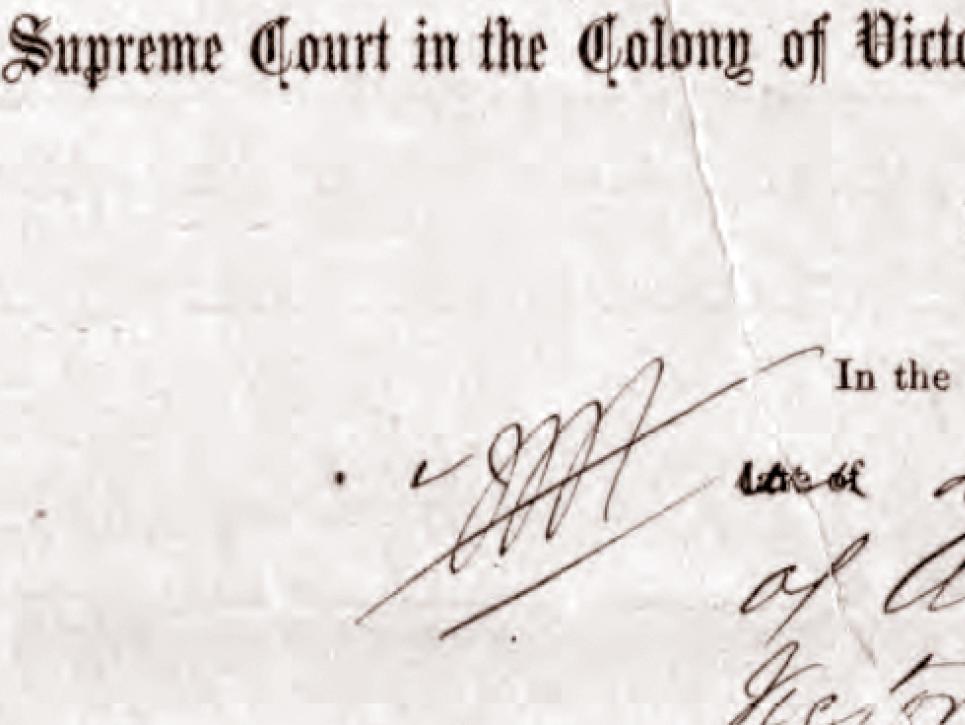 Supreme Court in the Colony of
In the
late of
of